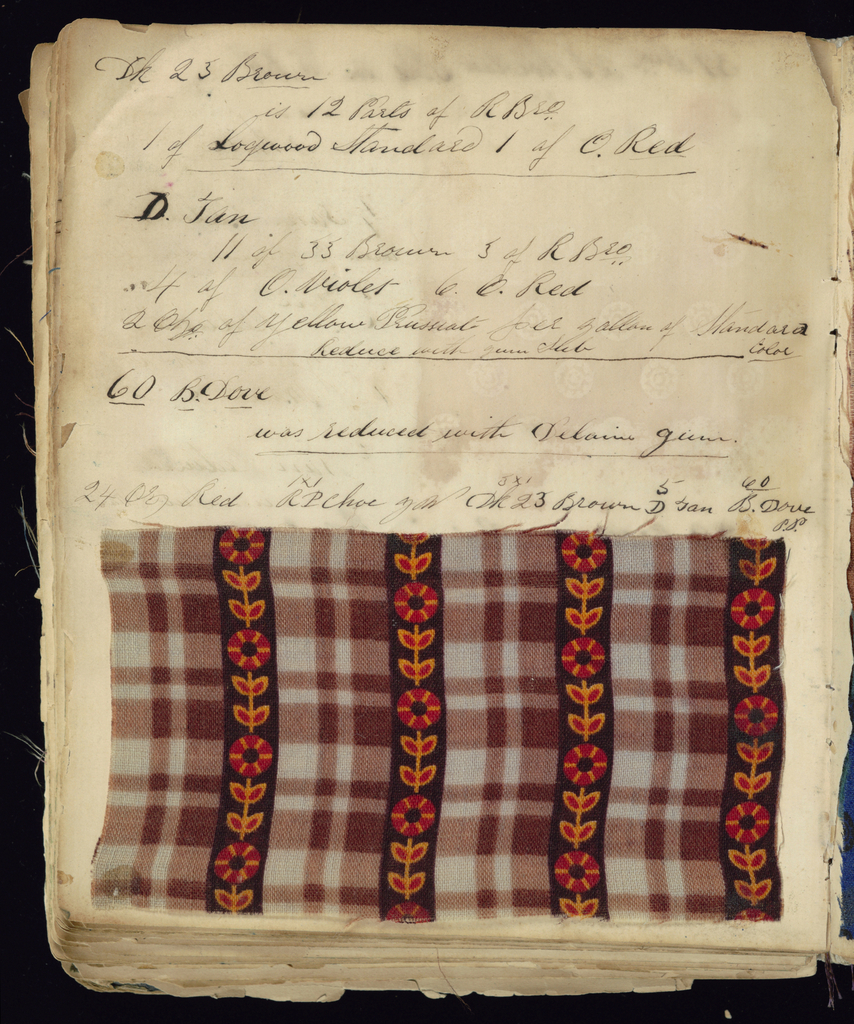 Dk 23 Brown
is 12 Parts of R Bro.
1 of Logwood Standard 1 of O. Red
D. Tan
11 of 33 Brown 3 of R Bro.
4 of O. Violet 6. O. Red
2 of Yellow Prussiat per gallon of Standard
Reduce with gum Sub Color
60 B. Dove
was reduced with Delaine gum.
3x1 5 60
24 Red Dk 23 Brown D Tan B. Dove
P.P.